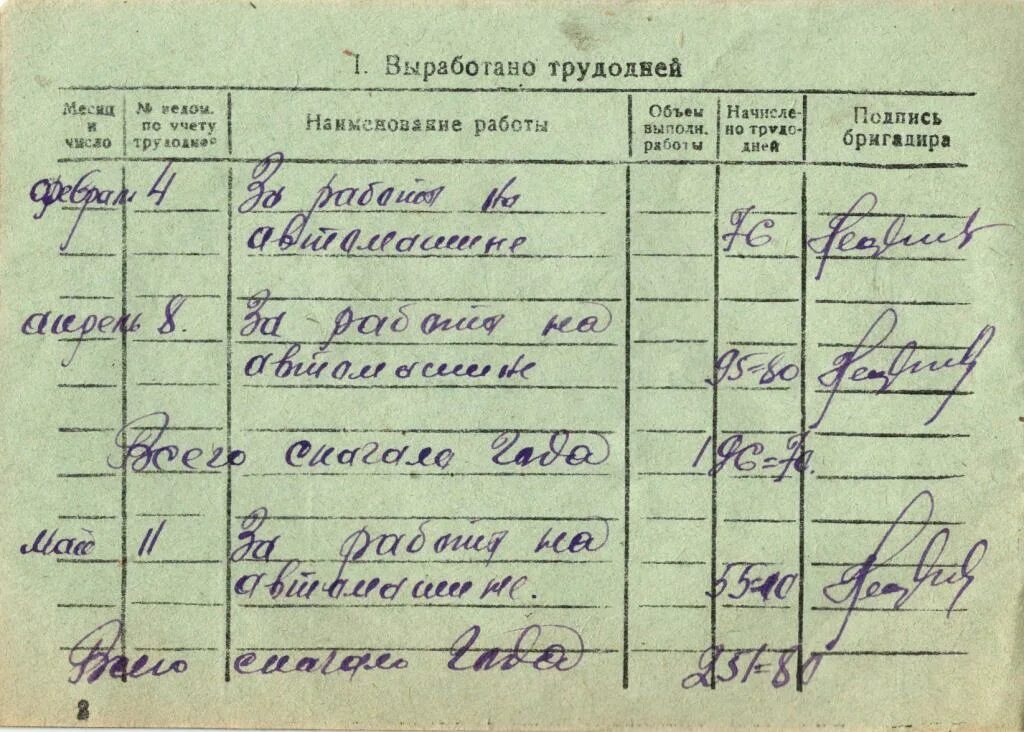 I. Выработано трудодней
Месяц и число
№ ведом. по учету трудодней
Наименование работы
Объем выполн. работы
Начислено трудодней
Подпись бригадира
февраль 4 За работы на
автомашине 76
апрель 8. За работы на
автомашине 95=80
Всего сначала года 196=70.
май 11 За работы на
автомашине. 55=10
Всего сначала года 251=80
2